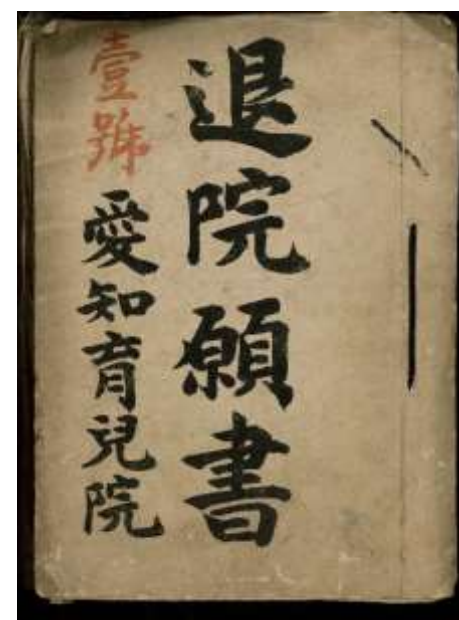 退院願書
壹號
愛知育兒院